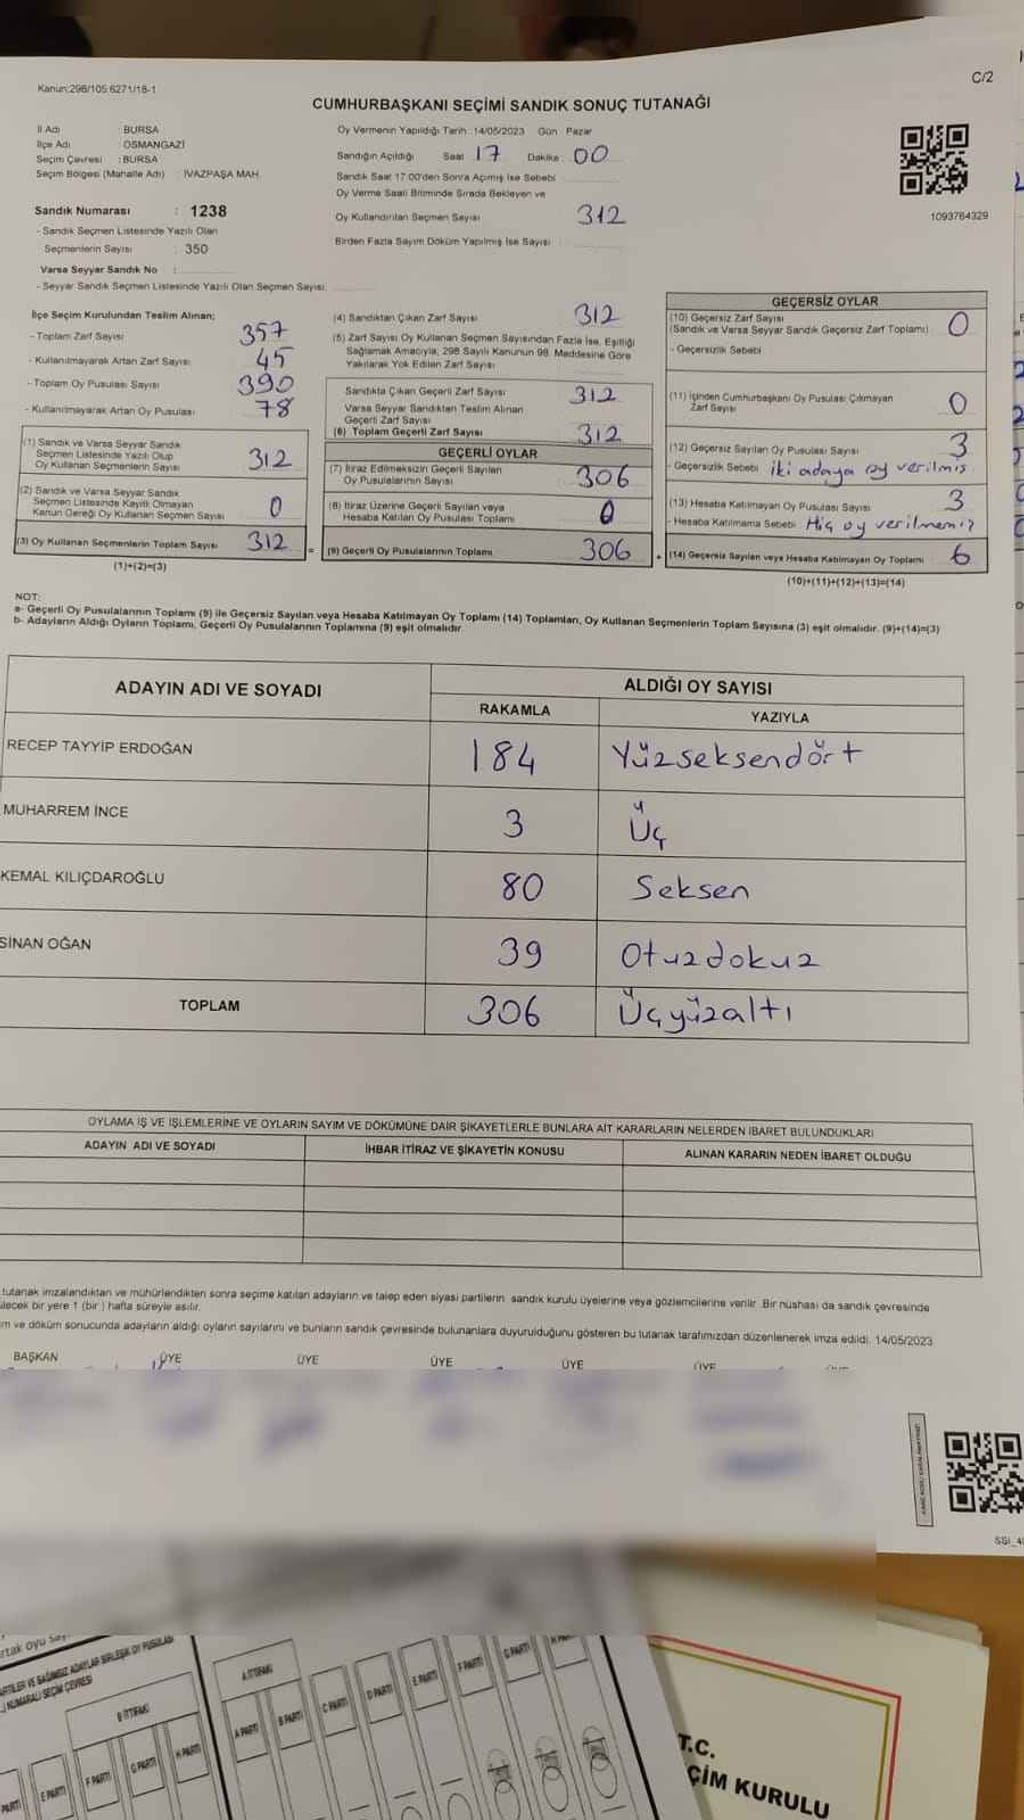 Kanun:298/105 6271/18-1
C/2
CUMHURBAŞKANI SEÇİMİ SANDIK SONUÇ TUTANAĞI
İl Adı BURSA
İlçe Adı : OSMANGAZİ
Seçim Çevresi : BURSA
Seçim Bölgesi (Mahalle Adı) : IVAZPAŞA MAH.
Sandık Numarası : 1238
- Sandık Seçmen Listesinde Yazılı Olan
Seçmenlerin Sayısı : 350
Varsa Seyyar Sandık No :
- Seyyar Sandık Seçmen Listesinde Yazılı Olan Seçmen Sayısı:
Oy Vermenin Yapıldığı Tarih : 14/05/2023 Gün : Pazar
Sandığın Açıldığı Saat 17 Dakika : 00
Sandık Saat 17:00'den Sonra Açmış İse Sebebi
Oy Verme Saati Bitiminde Sırada Bekleyen ve
Oy Kullandırılan Seçmen Sayısı 312
Birden Fazla Sayım Döküm Yapılmış İse Sayısı :
1093764329
İlçe Seçim Kurulundan Teslim Alınan;
- Toplam Zarf Sayısı 357
- Kullanılmayarak Artan Zarf Sayısı 45
- Toplam Oy Pusulası Sayısı 390
- Kullanılmayarak Artan Oy Pusulası 78
(1) Sandık ve Varsa Seyyar Sandık
Seçmen Listesinde Yazılı Olup
Oy Kullanan Seçmenlerin Sayısı 312
(2) Sandık ve Varsa Seyyar Sandık
Seçmen Listesinde Kayıtlı Olmayan
Kanun Gereği Oy Kullanan Seçmen Sayısı 0
(3) Oy Kullanan Seçmenlerin Toplam Sayısı 312
(1)+(2)=(3)
(4) Sandıktan Çıkan Zarf Sayısı 312
(5) Zarf Sayısı Oy Kullanan Seçmen Sayısından Fazla İse, Eşitliği
Sağlamak Amacıyla, 298 Sayılı Kanunun 98. Maddesine Göre
Yakılarak Yok Edilen Zarf Sayısı
Sandıkta Çıkan Geçerli Zarf Sayısı 312
Varsa Seyyar Sandıktan Teslim Alınan
Geçerli Zarf Sayısı
(6) Toplam Geçerli Zarf Sayısı 312
GEÇERLİ OYLAR
(7) İtiraz Edilmeksizin Geçerli Sayılan
Oy Pusulalarının Sayısı 306
(8) İtiraz Üzerine Geçerli Sayılan veya
Hesaba Katılan Oy Pusulası Toplamı 0
= (9) Geçerli Oy Pusulalarının Toplamı 306
GEÇERSİZ OYLAR
(10) Geçersiz Zarf Sayısı
(Sandık ve Varsa Seyyar Sandık Geçersiz Zarf Toplamı) 0
- Geçersizlik Sebebi
(11) İçinden Cumhurbaşkanı Oy Pusulası Çıkmayan
Zarf Sayısı 0
(12) Geçersiz Sayılan Oy Pusulası Sayısı 3
- Geçersizlik Sebebi iki adaya oy verilmiş
(13) Hesaba Katılmayan Oy Pusulası Sayısı 3
- Hesaba Katılmama Sebebi Hiç oy verilmemiş
+ (14) Geçersiz Sayılan veya Hesaba Katılmayan Oy Toplamı 6
(10)+(11)+(12)+(13)=(14)
NOT:
a- Geçerli Oy Pusulalarının Toplamı (9) ile Geçersiz Sayılan veya Hesaba Katılmayan Oy Toplamı (14) Toplamları, Oy Kullanan Seçmenlerin Toplam Sayısına (3) eşit olmalıdır. (9)+(14)=(3)
b- Adayların Aldığı Oyların Toplamı, Geçerli Oy Pusulalarının Toplamına (9) eşit olmalıdır.
ADAYIN ADI VE SOYADI
ALDIĞI OY SAYISI
RAKAMLA YAZIYLA
RECEP TAYYİP ERDOĞAN 184 Yüzseksendört
MUHARREM İNCE 3 Üç
KEMAL KILIÇDAROĞLU 80 Seksen
SİNAN OĞAN 39 Otuzdokuz
TOPLAM 306 Üçyüzaltı
OYLAMA İŞ VE İŞLEMLERİNE VE OYLARIN SAYIM VE DÖKÜMÜNE DAİR ŞİKAYETLERLE BUNLARA AİT KARARLARIN NELERDEN İBARET BULUNDUKLARI
ADAYIN ADI VE SOYADI İHBAR İTİRAZ VE ŞİKAYETİN KONUSU ALINAN KARARIN NEDEN İBARET OLDUĞU
tutanak imzalandıktan ve mühürlendikten sonra seçime katılan adayların ve talep eden siyasi partilerin sandık kurulu üyelerine veya gözlemcilerine verilir. Bir nüshası da sandık çevresinde
bir yere 1 (bir) hafta süreyle asılır.
ve döküm sonucunda adayların aldığı oyların sayılarını ve bunların sandık çevresinde bulunanlara duyurulduğunu gösteren bu tutanak tarafımızdan düzenlenerek imza edildi. 14/05/2023
BAŞKAN ÜYE ÜYE ÜYE ÜYE ÜYE
B İTTİFAKI
A İTTİFAKI
E PARTİ F PARTİ G PARTİ H PARTİ
A PARTİ B PARTİ C PARTİ D PARTİ E PARTİ F PARTİ G PARTİ
T.C.
ÇİM KURULU